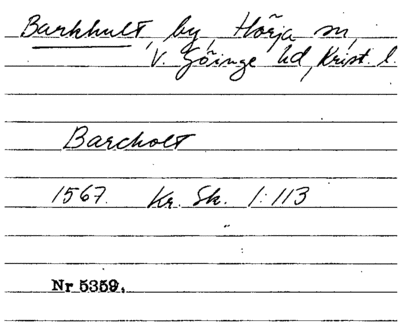 Barkhult, by, Hörja sn,
V. Göinge hd, Krist. l.
Barcholt
1567. Kr. Sk. 1:113
Nr 5359.